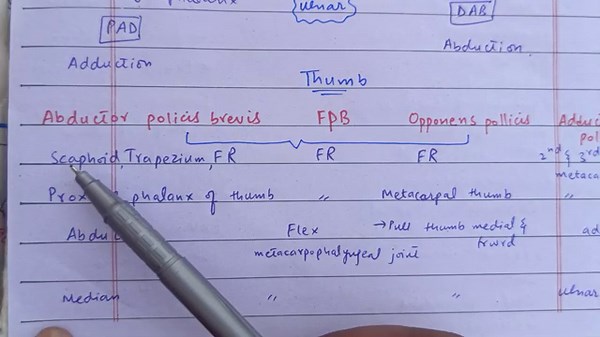 ulnar
PAD DAB
Adduction Abduction
Thumb
Abductor policis brevis FPB Opponens pollicis
Scaphoid, Trapezium, FR FR FR 2nd & 3rd
metaca
phalanx of thumb " Metacarpal thumb "
Flex → Pull thumb medial & ad
frwrd
metacarpophalyngeal joint
Median " " ulnar